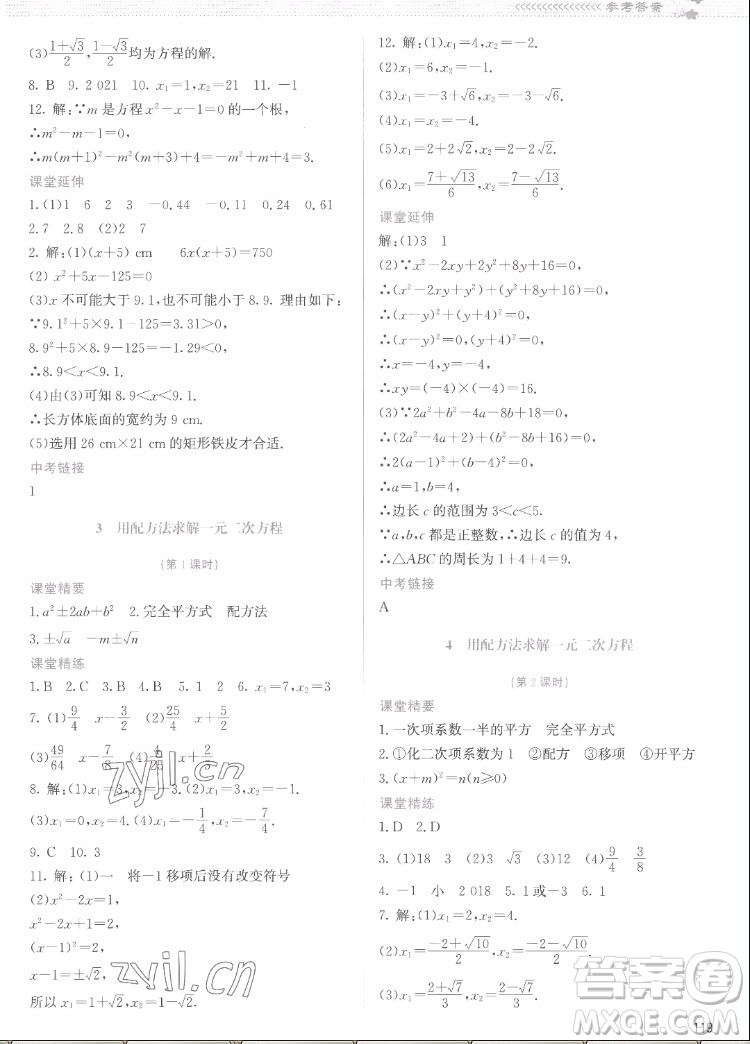 参考答案
(3)(1+√3)/2,(1-√3)/2均为方程的解.
8. B 9. 2 021 10. x₁=1,x₂=21 11. -1
12. 解:∵m是方程x²-x-1=0的一个根,
∴m²-m-1=0,
∴m(m+1)²-m²(m+3)+4=3.
课堂延伸
1. (1)1 6 2 3 -0.44 -0.11 0.24 0.61
2.7 2.8 (2)2 7
2. 解:(1)(x+5) cm 6x(x+5)=750
(2) x²+5x-125=0
(3)x不可能大于9.1,也不可能小于8.9. 理由如下:
∵9.1²+5×9.1-125=3.31>0,
8.9²+5×8.9-125=-1.29<0,
∴8.9<x<9.1.
(4)由(3)可知8.9<x<9.1.
∴长方体底面的宽约为9 cm.
(5)选用26 cm×21 cm的矩形铁皮才合适.
中考链接
1
3 用配方法求解一元二次方程
(第1课时)
课堂精要
1. a²±2ab+b² 2. 完全平方式 配方法
3. ±√a -m±√n
课堂精练
1. B 2. C 3. B 4. B 5. 1 2 6. x₁=7,x₂=3
7. (1)9/4 x-3/2 (2)25/4 x+5/2
(3)49/64 x-7/8
8. 解:(1)x₁=3,
(3)x₁=0,x₂=4. (4)x₁=-1/4,x₂=-7/4.
9. C 10. 3
11. 解:(1)一 将-1移项后没有改变符号
(2)x²-2x=1,
x²-2x+1=2,
(x-1)²=2,
x-1=±√2,
所以x₁=1+√2,x₂=1-√2.
12. 解:(1)x₁=4,x₂=-1.
(2)x₁=6,x₂=-1.
(3)x₁=-3+√6,x₂=-3-√6.
(4)x₁=x₂=-4.
(5)x₁=2+2√2,x₂=2-2√2.
(6)x₁=(7+√13)/6,x₂=(7-√13)/6.
课堂延伸
解:(1)3 1
(2)∵x²-2xy+2y²+8y+16=0,
∴(x²-2xy+y²)+(y²+8y+16)=0,
∴(x-y)²+(y+4)²=0,
∴x-y=0,y+4=0,
∴x=-4,y=-4,
∴xy=(-4)×(-4)=16.
(3)∵2a²+b²-4a-8b+18=0,
∴(2a²-4a+2)+(b²-8b+16)=0,
∴2(a-1)²+(b-4)²=0,
∴a=1,b=4,
∴边长c的范围为3<c<5.
∵a,b,c都是正整数,∴边长c的值为4,
∴△ABC的周长为1+4+4=9.
中考链接
A
4 用配方法求解一元二次方程
(第2课时)
课堂精要
1. 一次项系数一半的平方 完全平方式
2. ①化二次项系数为1 ②配方 ③移项 ④开平方
3. (x+m)²=n(n≥0)
课堂精练
1. D 2. D
3. (1)18 3 (2)3 √3 (3)9/4 3/8
4. -1 小 2 018 5. 1或-3 6. 1
7. 解:(1)x₁=2,x₂=4.
(2)x₁=(-2+√10)/2,x₂=(-2-√10)/2.
(3)x₁=(-2+√7)/3,x₂=(-2-√7)/3.
119
zyjl.cn
zyjl.cn
答案圈
MXQE.COM